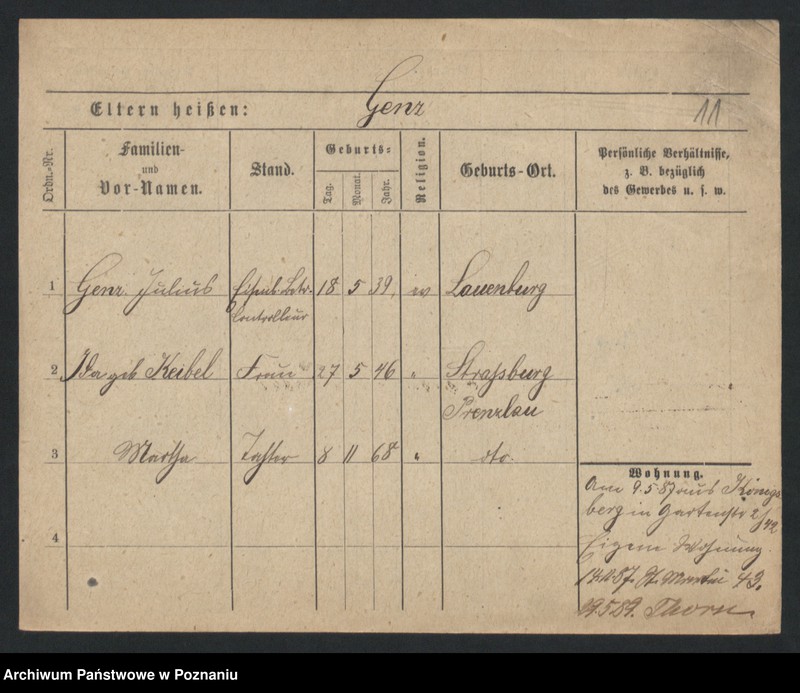 Eltern heißen: Genz 11
Ordn.-Nr.
Familien-
und
Vor-Namen.
Stand.
Geburts-
Tag. Monat. Jahr.
Religion.
Geburts-Ort.
Persönliche Verhältnisse,
z. B. bezüglich
des Gewerbes u. s. w.
1 Genz Julius Eisenb. Betr. 18 5 39. ev Lauenburg
Controlleur
2 Ida geb Keibel Frau 27 5 46 " Strassburg
Prenzlau
3 Martha Tochter 8 11 68 " dto.
Wohnung.
Am 9.5.87 aus Königs
berg in Gartenstr
4
Eigene Wohnung.
St. Martin 43.
Thorn
Archiwum Państwowe w Poznaniu